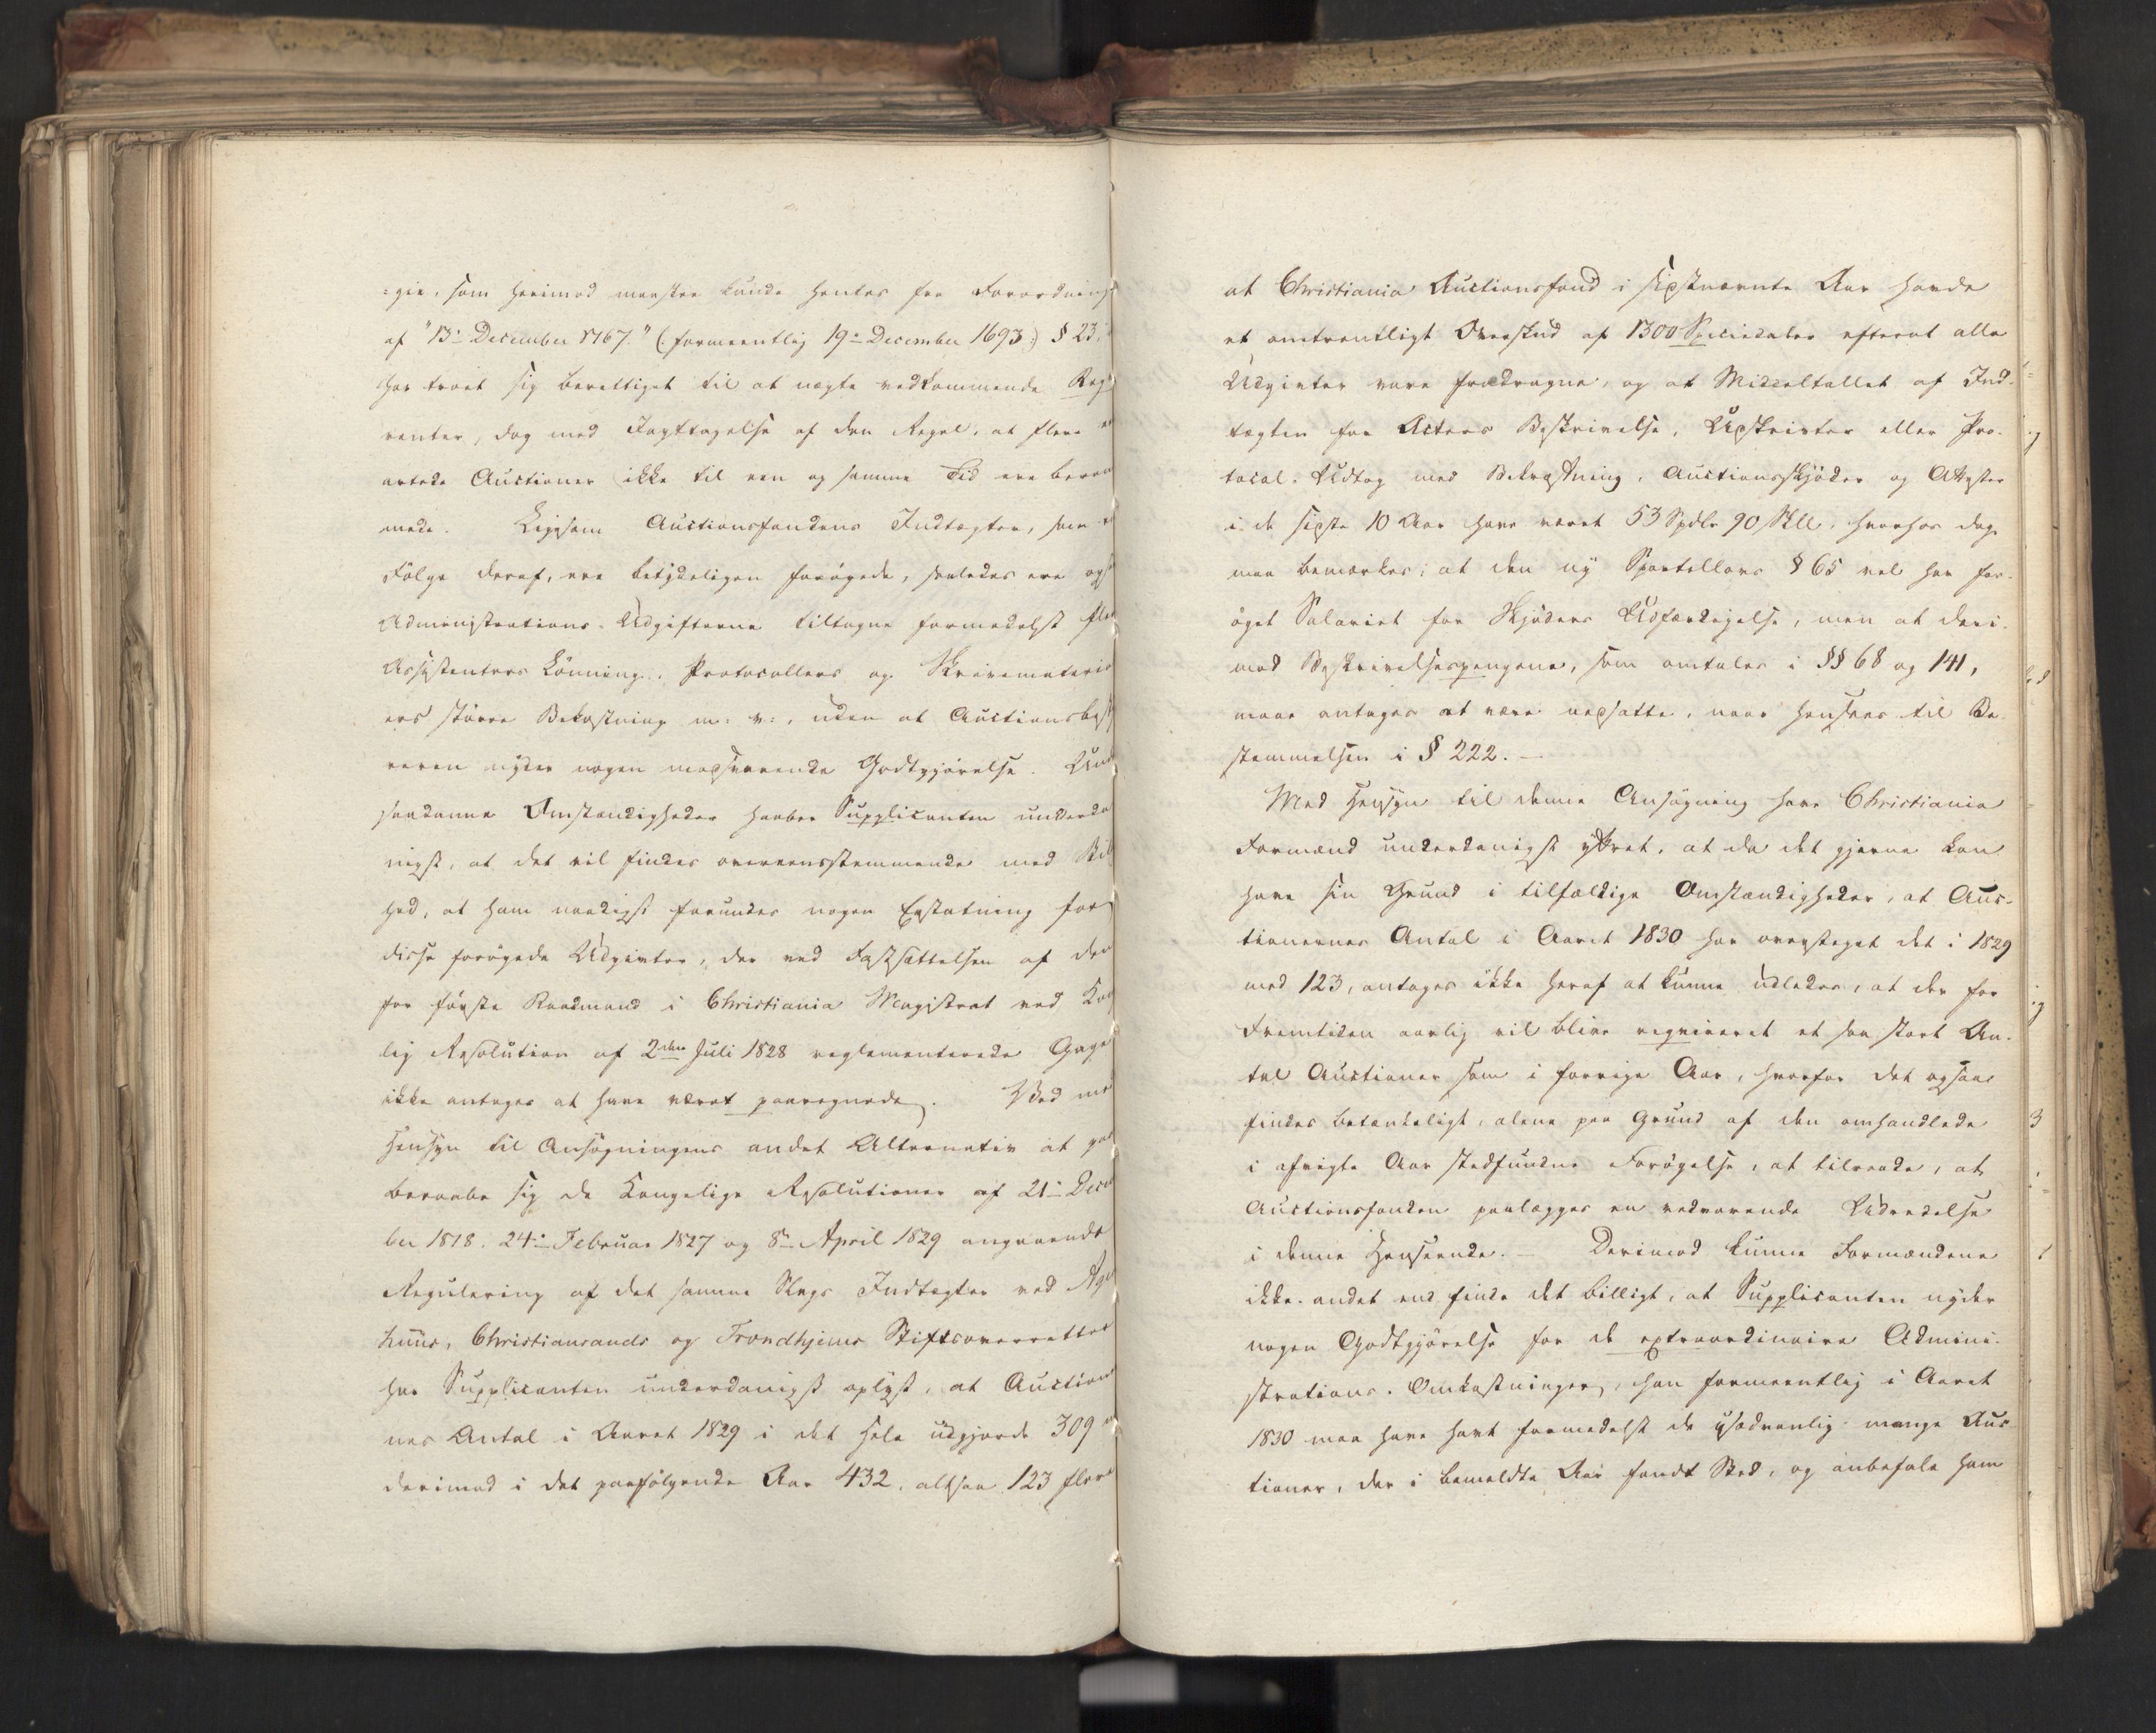 :gie, som herimod maaskee kunde hentes fra Forordning
af "13de December 1767." (: formeentlig 19de December 1693 :) § 23,
har troet sig berettiget til at nægte vedkommende Reqvi
renter, dog med Iagttagelse af den Regel, at flere
artede Auctioner ikke til een og samme Tid ere beram
mede. Ligesom Auctionsfondens Indtægter, som
Følge deraf, ere betydeligen forøgede, saaledes ere og
Administrations-Udgifterne tiltagne formedelst fle
Assistenters Lønning, Protocollers og Skrivemateria
ers større Bekostning m: v:, uden at Auctionsbesty
reren nyder nogen modsvarende Godtgjørelse. Und
saadanne Omstændigheder haaber Supplicanten underda
nigst, at det vil findes overeensstemmende med Bil
hed, at ham naadigst forundes nogen Erstatning for
disse forøgede Udgivter, der ved Fastsættelsen af den
for første Raadmand i Christiania Magistrat ved Kon
lig Resolution af 2den Juli 1828 reglementerede Gage
ikke antages at have været paaregnede. Ved
Hensyn til Ansøgningens andet Alternativ at paa
beraabe sig de Kongelige Resolutioner af 21de Dece
ber 1818, 24de Februar 1827 og 8de April 1829 angaaende
Regulering af det samme Slags Indtægter ved Ag
huus, Christiansands og Trondhjems Stiftsoverretter
har Supplicanten underdanigst oplyst, at Auction
nes Antal i Aaret 1829 i det Hele udgjorde 309
derimod i det paafølgende Aar 432, altsaa 123 flere
at Christiania Auctionsfond i sidstnævnte Aar havde
et omtrentligt Overskud af 1300 Speciedaler efterat alle
Udgivter vare fradragne, og at Middeltallet af Ind-
tægten for Acters Beskrivelse, Udskrivter eller Pro-
tocol-Udtog med Bekræftning, Auctionsskjøder og Attester
i de sidste 10 Aar have været 53 Spdlr 90 Skll, hvorhos dog
maa bemærkes, at den ny Sportellovs § 65 vel har for-
øget Salariet for Skjøders Udfærdigelse, men at deri-
mod Beskrivelsespengene, som omtales i §§ 68 og 141,
maae antages at være nedsatte, naar hensees til Be-
stemmelsen i § 222. —
Med Hensyn til denne Ansøgning have Christiania
Formænd underdanigst yttret, at da det gjerne kan
have sin Grund i tilfældige Omstændigheder, at Auc-
tionernes Antal i Aaret 1830 har oversteget det i 1829
med 123, antages ikke heraf at kunne udledes, at der for
Fremtiden aarlig vil blive reqvireret et saa stort An-
tal Auctioner som i forrige Aar, hvorfor det ogsaa
findes betænkeligt, alene paa Grund af den omhandlede
i afvigte Aar stedfundne Forøgelse, at tilraade, at
Auctionsfonden paalægges en vedvarende Udredelse
i denne Henseende. — Derimod kunne Formændene
ikke andet end finde det billigt, at Supplicanten nyder
nogen Godtgjørelse for de extraordinaire Admini-
strations-Omkostninger, han formeentlig i Aaret
1830 maa have havt formedelst de usædvanlig mange Auc
tioner, der i bemeldte Aar fandt Sted, og anbefale ham